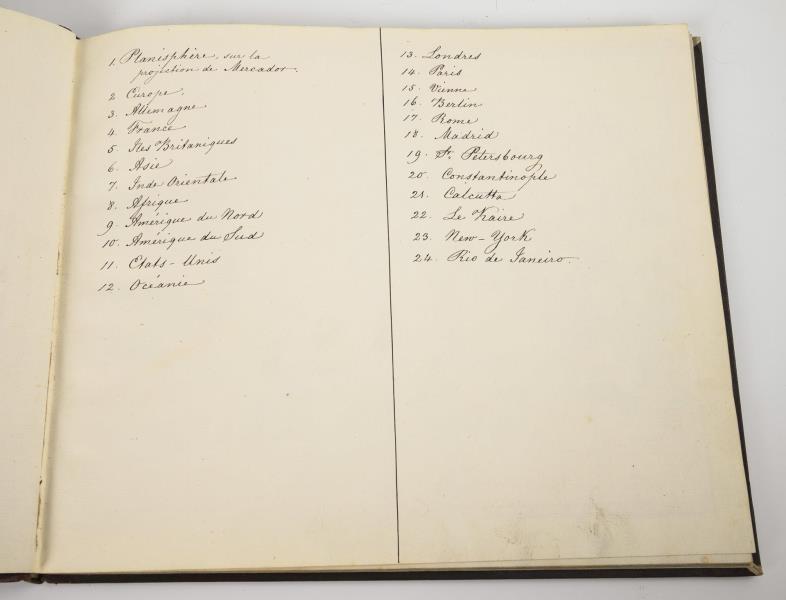 1. Planisphère, sur la
projection de Mercador.
2 Europe.
3. Allemagne
4. France
5. Îles Britaniques
6. Asie
7. Inde Orientale
8. Afrique
9. Amérique du Nord
10. Amérique du Sud
11. Etats-Unis
12. Océanie
13. Londres
14. Paris
15. Vienne
16. Berlin
17. Rome
18. Madrid
19. St. Petersbourg
20. Constantinople
21. Calcutta
22. Le Kaire
23. New-York
24. Rio de Janeiro.